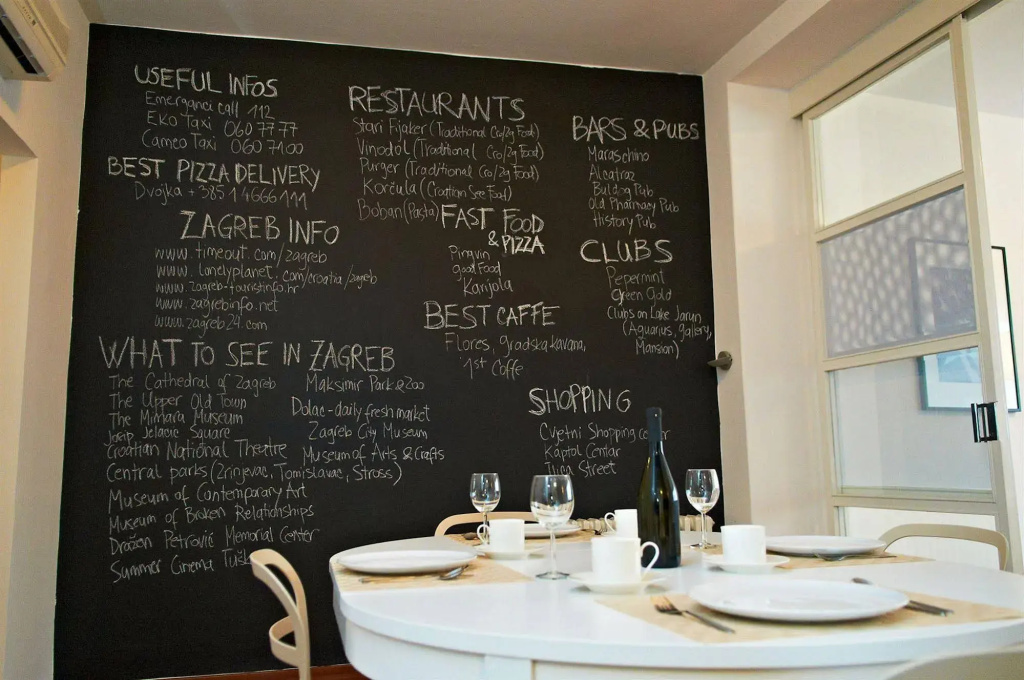 USEFUL INFOS
Emerganci call 112
EKO Taxi 060 77 77
Cameo Taxi 060 7100
BEST PIZZA DELIVERY
Dvojka +385 1 4666 111
ZAGREB INFO
www.timeout.com/zagreb
www.lonelyplanet.com/croatia/zagreb
www.zagreb-touristinfo.hr
www.zagrebinfo.net
www.zagreb24.com
WHAT TO SEE IN ZAGREB
The Cathedral of Zagreb
The Upper Old Town
The Mimara Museum
Josip Jelacic Square
Croatian National Theatre
Central parks (Zrinjevac, Tomislavac, Stross)
Museum of Contemporary Art
Museum of Broken Relationships
Dražen Petrović Memorial Center
Summer Cinema Tušk
Maksimir Park & Zoo
Dolac-daily fresh market
Zagreb City Museum
Museum of Arts & Crafts
RESTAURANTS
Stari Fijaker (Traditional Cro/Zg Food)
Vinodol (Traditional Cro/Zg Food)
Purger (Traditional Cro/Zg Food)
Korčula (Croatian See Food)
Boban (Pasta)
FAST FOOD
& PIZZA
Pingvin
good Food
Karijola
BEST CAFFE
Flores, gradska kavana,
1st Coffe
BARS & PUBS
Maraschino
Alcatraz
Buldog Pub
Old Pharmacy Pub
History Pub
CLUBS
Pepermint
Green Gold
Clubs on Lake Jarun
(Aquarius, gallery,
Mansion)
SHOPPING
Cvjetni Shopping center
Kaptol Centar
Ilica Street